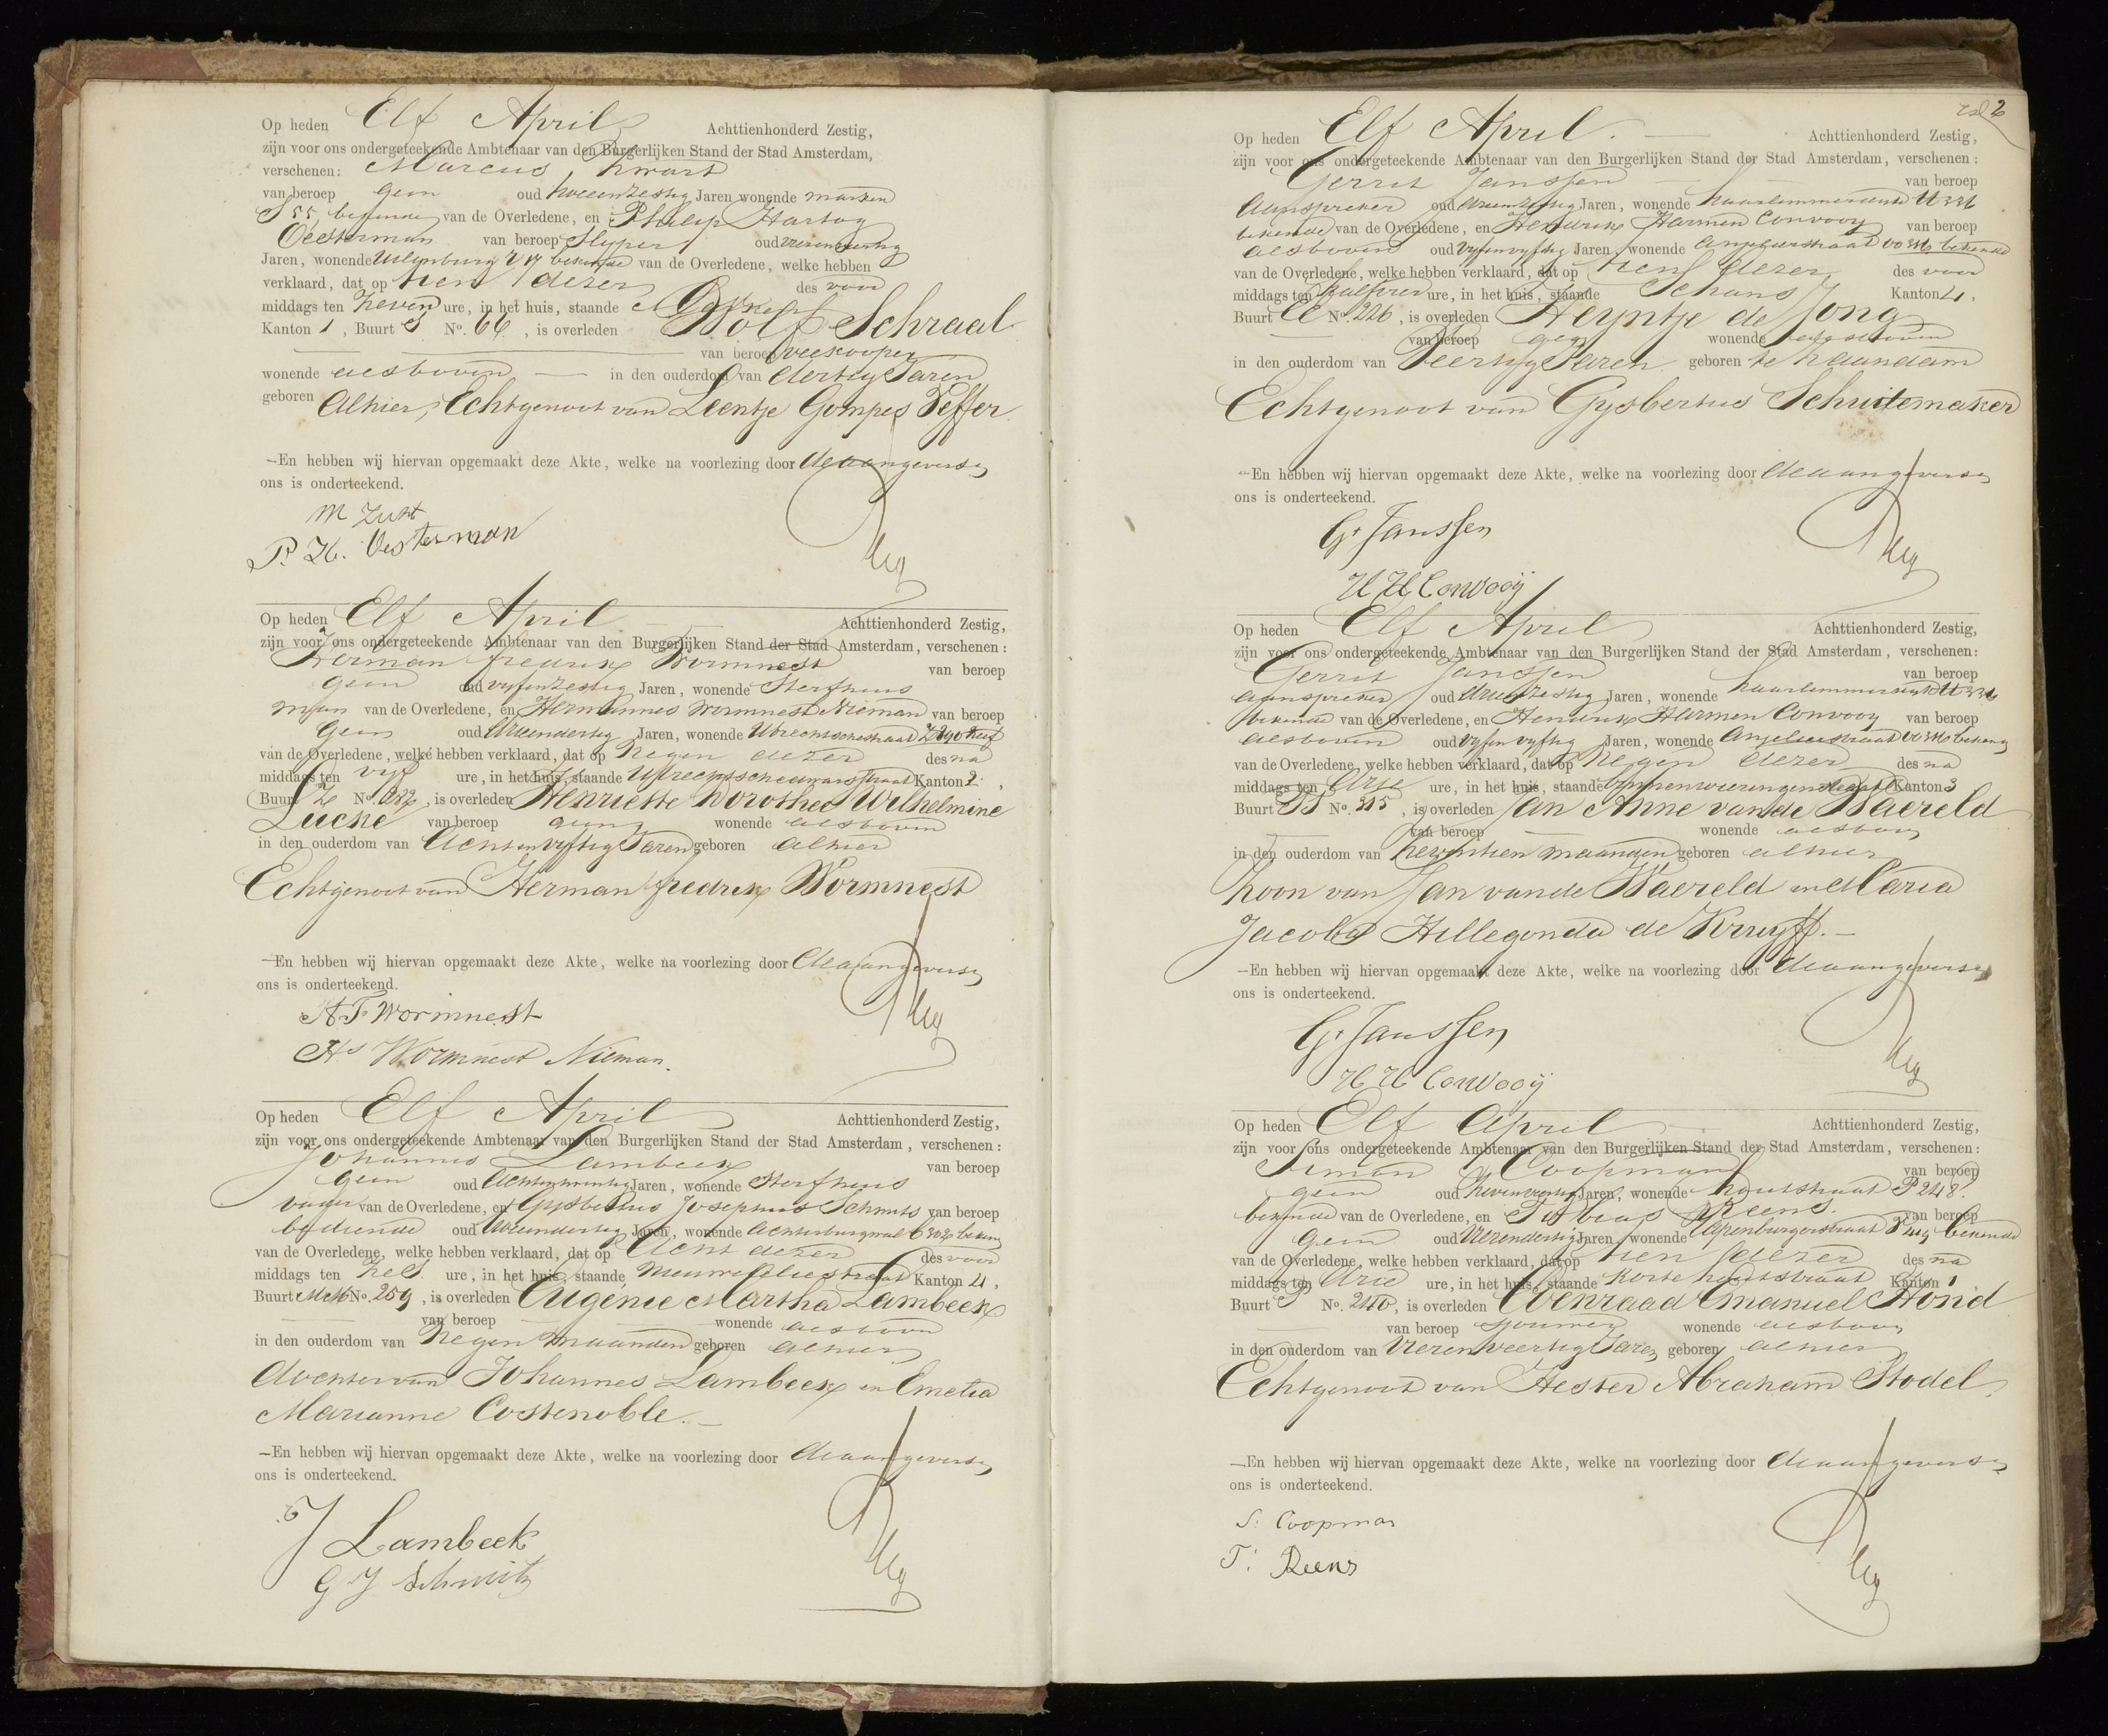 Op heden Elf April Achttienhonderd Zestig,
zijn voor ons ondergeteekende Ambtenaar van den Burgerlijken Stand der Stad Amsterdam,
verschenen: Marcus Zwart
van beroep geen oud tweeenzestig Jaren wonende marken
S 55, bekende van de Overledene, en Philip Hartog
Oesterman van beroep Slyper oud vierenveertig
Jaren, wonende Uilenburg bekende van de Overledene, welke hebben
verklaard, dat op tien dezer des voor
middags ten zeven ure, in het huis, staande
Kanton 1, Buurt S No. 66, is overleden Dolf Schraal
van beroep veekooper
wonende alsboven in den ouderdom van dertig Jaren
geboren Alhier, Echtgenoot van Leentje Gompes Peffer
—En hebben wij hiervan opgemaakt deze Akte, welke na voorlezing door de aangevers en
ons is onderteekend.
P. H. Oesterman
Op heden Elf April Achttienhonderd Zestig,
zijn voor ons ondergeteekende Ambtenaar van den Burgerlijken Stand der Stad Amsterdam, verschenen:
Herman fredrik Wormnest van beroep
geen oud vyfenzestig Jaren, wonende Sterfhuis
man van de Overledene, en Hermannes Wormnest Nieman van beroep
Geen oud drieendertig Jaren, wonende Utrechtschestraat
van de Overledene, welke hebben verklaard, dat op negen dezer des na
middags ten vyf ure, in het huis, staande Utrechtschedwarsstraat Kanton 2.
Buurt No. is overleden Henriette Dorothea Wilhelmine
Lucke van beroep geen wonende alsboven
in den ouderdom van Achtenvyftig Jaren geboren alhier
Echtgenoot van Herman fredrik Wormnest
—En hebben wij hiervan opgemaakt deze Akte, welke na voorlezing door de aangevers en
ons is onderteekend.
H F Wormnest
Hs Wormnest Nieman.
Op heden Elf April Achttienhonderd Zestig,
zijn voor ons ondergeteekende Ambtenaar van den Burgerlijken Stand der Stad Amsterdam, verschenen:
Johannes Lambeek van beroep
geen oud Achtentwintig Jaren, wonende Sterfhuis
vader van de Overledene, en Gysbertus Josephus Schmits van beroep
bediende oud drieendertig Jaren, wonende Achterburgwal
van de Overledene, welke hebben verklaard, dat op Acht dezer des voor
middags ten zes ure, in het huis, staande Kanton 4,
Buurt No. 259, is overleden Eugénie Martha Lambeek
van beroep wonende alsboven
in den ouderdom van Negen maanden geboren alhier
dochter van Johannes Lambeek en Emelia
Marianne Costenoble.
—En hebben wij hiervan opgemaakt deze Akte, welke na voorlezing door de aangevers en
ons is onderteekend.
J Lambeek
G J Schmitz
Op heden Elf April. Achttienhonderd Zestig,
zijn voor ons ondergeteekende Ambtenaar van den Burgerlijken Stand der Stad Amsterdam, verschenen:
Gerrit Janssen van beroep
Aanspreker oud drieenzestig Jaren, wonende haarlemmerdijk
bekende van de Overledene, en Hendrik Harmen Convooy van beroep
alsboven oud vyfenvyftig Jaren, wonende Anjelierstraat bekende
van de Overledene, welke hebben verklaard, dat op tien dezer des voor
middags ten half vier ure, in het huis, staande Schans Kanton 4,
Buurt No. 226, is overleden Heyntje de Jong
van beroep geen wonende alsboven
in den ouderdom van Veertig Jaren geboren te Zaandam
Echtgenoot van Gysbertus Schuitemaker
—En hebben wij hiervan opgemaakt deze Akte, welke na voorlezing door de aangevers en
ons is onderteekend.
G. Janssen
H H Convooij
Op heden Elf April Achttienhonderd Zestig,
zijn voor ons ondergeteekende Ambtenaar van den Burgerlijken Stand der Stad Amsterdam, verschenen:
Gerrit Janssen van beroep
aanspreker oud drieenzestig Jaren, wonende haarlemmerdijk
bekende van de Overledene, en Hendrik Harmen Convooy van beroep
alsboven oud vyfenvyftig Jaren, wonende Anjelierstraat bekende
van de Overledene, welke hebben verklaard, dat op negen dezer des na
middags ten drie ure, in het huis, staande Kanton 3
Buurt No. is overleden Jan Anne van de Waereld
van beroep wonende alsboven
in den ouderdom van zeventien maanden geboren alhier
Zoon van Jan van de Waereld en Maria
Jacoba Hillegonda de Kruyff.
—En hebben wij hiervan opgemaakt deze Akte, welke na voorlezing door de aangevers en
ons is onderteekend.
G. Janssen
H H Convooij
Op heden Elf April Achttienhonderd Zestig,
zijn voor ons ondergeteekende Ambtenaar van den Burgerlijken Stand der Stad Amsterdam, verschenen:
Simon Coopman van beroep
geen oud zevenveertig Jaren, wonende houtstraat P 248.
bekende van de Overledene, en Tobias Reens. van beroep
Geen oud vierendertig Jaren, wonende bekende
van de Overledene, welke hebben verklaard, dat op tien dezer des na
middags ten drie ure, in het huis, staande Korte houtstraat Kanton 1,
Buurt P No. is overleden Coenraad Emanuel Hond
van beroep wonende alsboven
in den ouderdom van Vierenveertig Jaren geboren alhier
Echtgenoot van Hester Abraham Stodel.
—En hebben wij hiervan opgemaakt deze Akte, welke na voorlezing door de aangevers en
ons is onderteekend.
S. Coopman
T. Reens